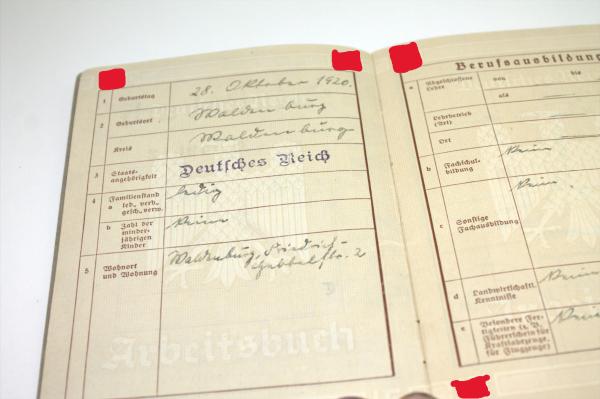 1 Geburtstag 28. Oktober 1920.
2 Geburtsort Waldenburg
Kreis Waldenburg
3 Staats-
angehörigkeit Deutsches Reich
4 Familienstand ledig
a led., verh.,
gesch., verw.
b Zahl der Keine
minder-
jährigen
Kinder
5 Wohnort Waldenburg, Friedrich-
und Wohnung Hebbelstr. 2
Arbeitsbuch
Berufsausbildung
a Abgeschlossene von bis
Lehre
als
Lehrbetrieb
(Art)
Ort
b Fachschul- Keine
bildung
c Sonstige Keine
Fachausbildung
d Landwirtschaftl. Keine
Kenntnisse
e Besondere Fer- Keine
tigkeiten (z. B.
Führerschein für
Kraftfahrzeuge,
für Flugzeuge)